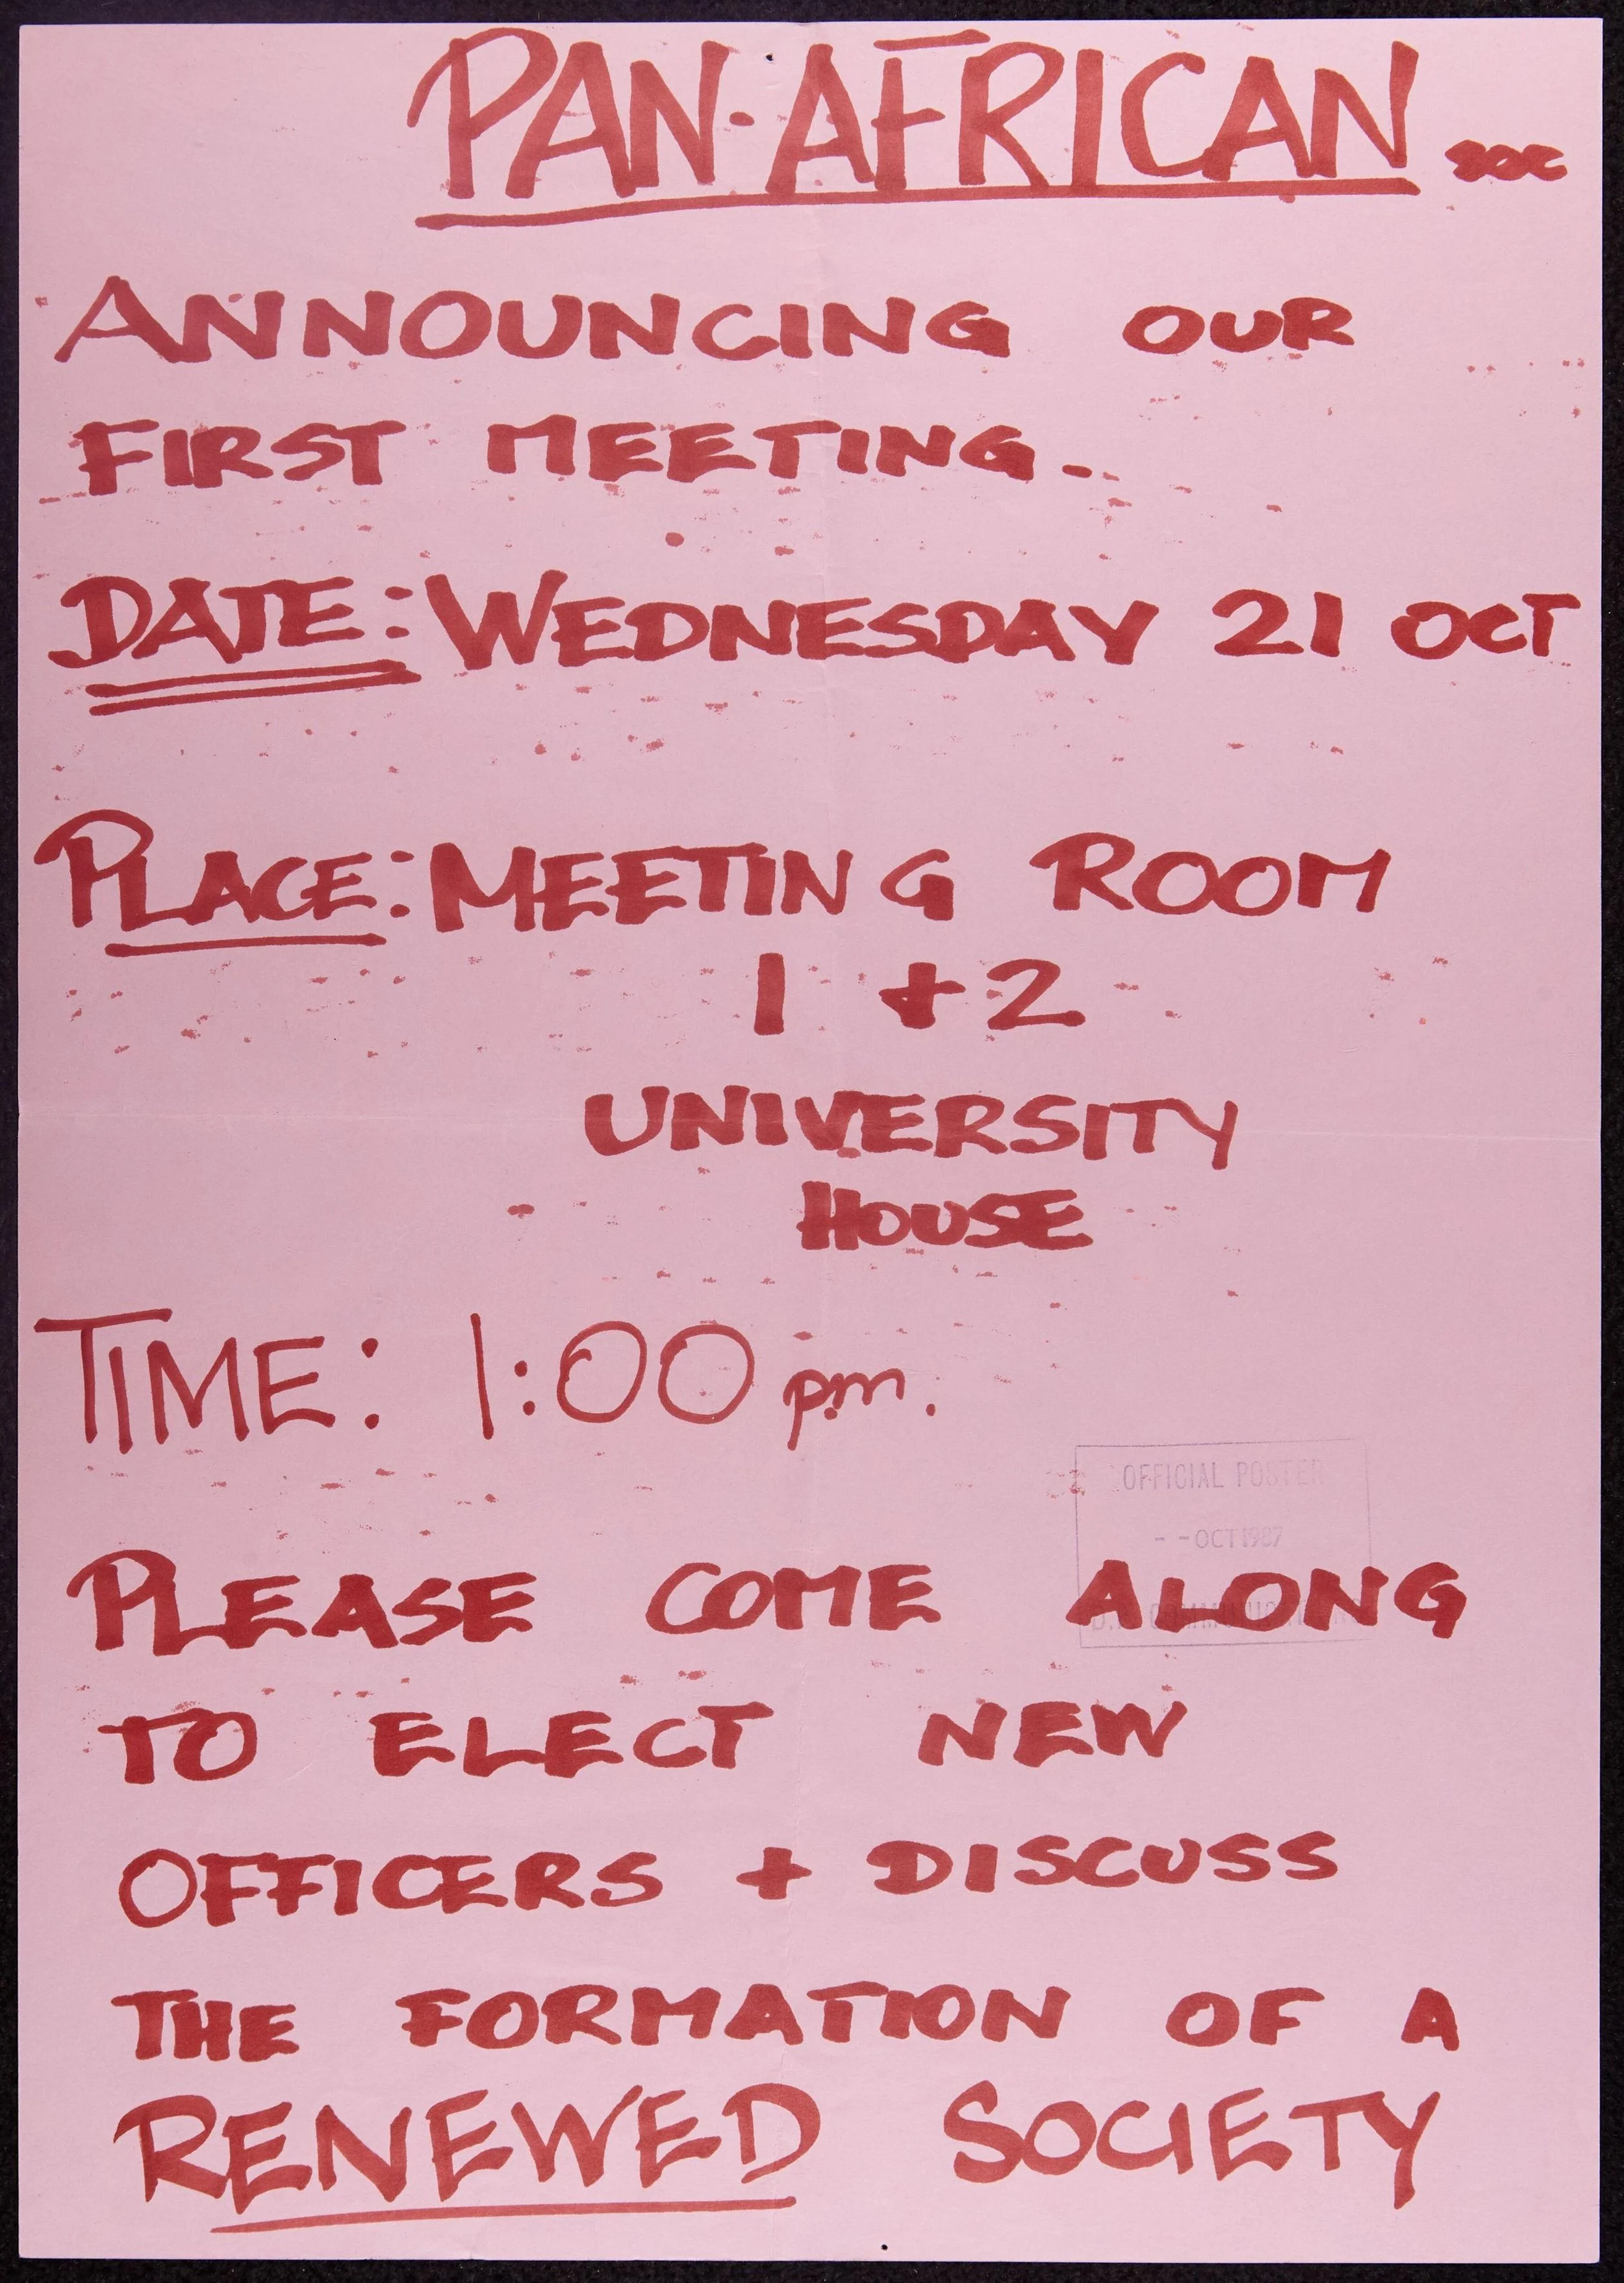 PAN-AFRICAN soc
ANNOUNCING OUR
FIRST MEETING.
DATE: WEDNESDAY 21 OCT
PLACE: MEETING ROOM
1 + 2
UNIVERSITY
HOUSE
TIME: 1:00 p.m.
OFFICIAL POSTER
- - OCT 1987
PLEASE COME ALONG
TO ELECT NEW
OFFICERS + DISCUSS
THE FORMATION OF A
RENEWED SOCIETY